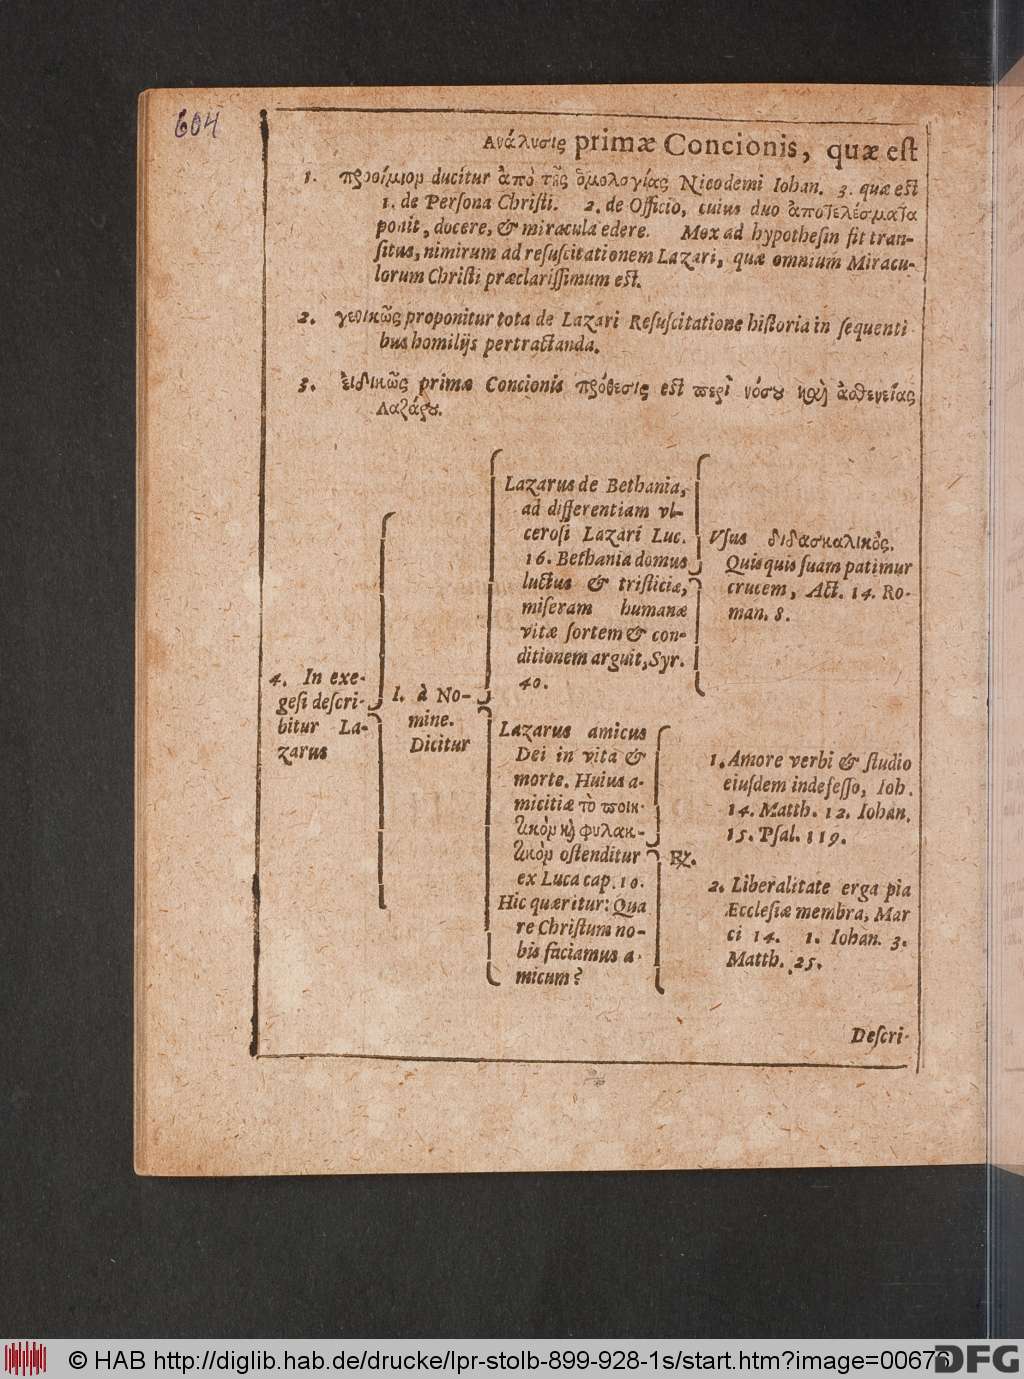 604
Ανάλυσις primæ Concionis, quæ est
1. προοίμιον ducitur ἀπὸ τῆς ὁμολογίας Nicodemi Iohan. 3. quæ est
1. de Persona Christi. 2. de Officio, cuius duo ἀποτελέσματα
ponit, docere, & miracula edere. Mox ad hypothesin fit tran-
situs, nimirum ad resuscitationem Lazari, quæ omnium Miracu-
lorum Christi præclarissimum est.
2. γενικῶς proponitur tota de Lazari Resuscitatione historia in sequenti
bus homilijs pertractanda.
3. εἰδικῶς primæ Concionis πρόθεσις est περὶ νόσου καὶ ἀσθενείας
Λαζάρου.
4. In exe-
gesi descri-
bitur La-
zarus
1. à No-
mine.
Dicitur
Lazarus de Bethania,
ad differentiam vl-
cerosi Lazari Luc.
16. Bethania domus
luctus & tristiciæ,
miseram humanæ
vitæ sortem & con-
ditionem arguit, Syr.
40.
Vsus διδασκαλικὸς.
Quisquis suam patimur
crucem, Act. 14. Ro-
man. 8.
Lazarus amicus
Dei in vita &
morte. Huius a-
micitiæ τὸ ποιη-
τικὸν καὶ φυλακ-
τικὸν ostenditur
ex Luca cap. 10.
Hic quæritur: Qua
re Christum no-
bis faciamus a-
micum?
℞.
1. Amore verbi & studio
eiusdem indefesso, Ioh.
14. Matth. 12. Iohan.
15. Psal. 119.
2. Liberalitate erga pia
Ecclesiæ membra, Mar
ci 14. 1. Iohan. 3.
Matth. 25.
Descri-
© HAB http://diglib.hab.de/drucke/lpr-stolb-899-928-1s/start.htm?image=00676
DFG